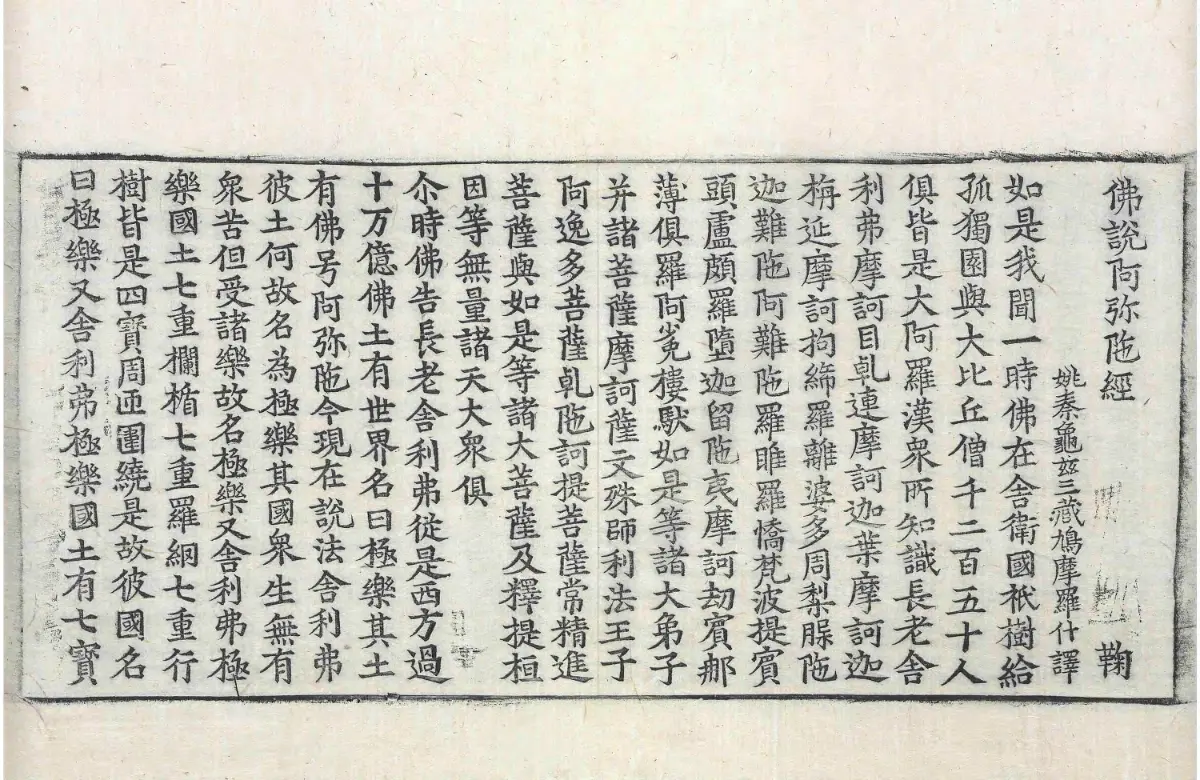 佛說阿弥陁經 鞠
姚秦龜茲三藏鳩摩羅什譯
如是我聞一時佛在舍衛國祇樹給
孤獨園與大比丘僧千二百五十人
俱皆是大阿羅漢衆所知識長老舍
利弗摩訶目乹連摩訶迦葉摩訶迦
栴延摩訶拘絺羅離婆多周梨脵陁
迦難陁阿難陁羅睺羅憍梵波提賓
頭盧頗羅墮迦留陁夷摩訶劫賓那
薄俱羅阿㝹樓馱如是等諸大弟子
并諸菩薩摩訶薩文殊師利法王子
阿逸多菩薩乹陁訶提菩薩常精進
菩薩與如是等諸大菩薩及釋提桓
因等無量諸天大衆俱
尒時佛告長老舍利弗從是西方過
十万億佛土有世界名曰極樂其土
有佛号阿弥陁今現在說法舍利弗
彼土何故名為極樂其國衆生無有
衆苦但受諸樂故名極樂又舍利弗極
樂國土七重欄楯七重羅網七重行
樹皆是四寶周匝圍繞是故彼國名
曰極樂又舍利弗極樂國土有七寶